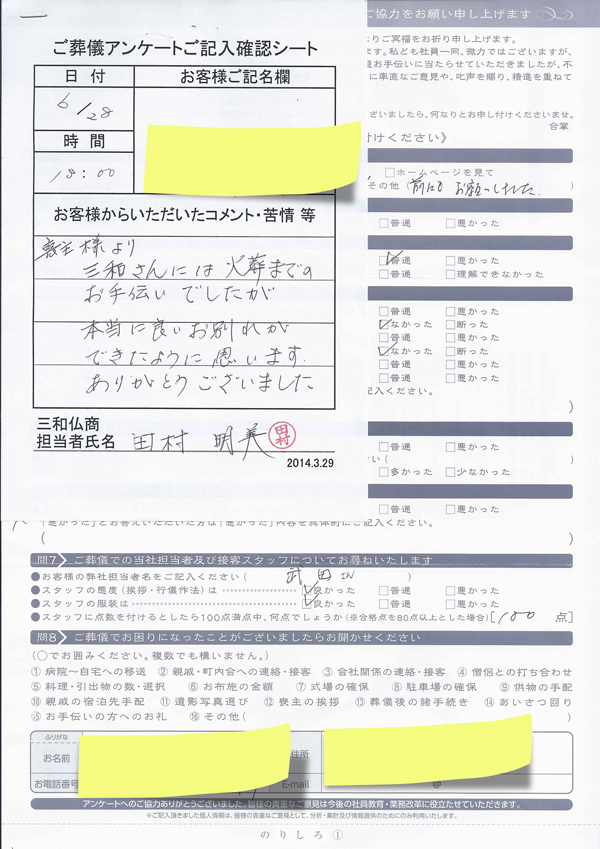 ご葬儀アンケートご記入確認シート
日 付
お客様ご記名欄
6/28
時 間
18:00
お客様からいただいたコメント・苦情 等
喪主様より
三和さんには火葬までの
お手伝いでしたが
本当に良いお別れが
できたように思います.
ありがとうございました
三和仏商
担当者氏名 田村 明美 田村
2014.3.29
ご協力をお願い申し上げます
よりご冥福をお祈り申し上げます。
ます。私ども社員一同、微力ではございますが、
お手伝いに当たらせていただきましたが、不
に率直なご意見や、叱声を賜り、精進を重ねて
ございましたら、何なりとお申し付けくださいませ。
合掌
付けください》
□ホームページを見て
その他(前にもお願いしました。
□普通 □悪かった
□普通 □悪かった
□普通 □理解できなかった
□普通 □悪かった
□なかった □断った
□普通 □悪かった
□なかった □悪かった
□普通 □悪かった
□普通 □悪かった
記入ください。
)
□普通 □悪かった
い( )
□多かった □少なかった
□普通 □悪かった
「悪かった」とお答えいただいた方は「悪かった」内容を具体的にご記入ください。
( )
問7 ご葬儀での当社担当者及び接客スタッフについてお尋ねいたします
●お客様の弊社担当者名をご記入ください( 武田 )
●スタッフの態度(挨拶・行儀作法)は □良かった □普通 □悪かった
●スタッフの服装は □良かった □普通 □悪かった
●スタッフに点数を付けるとしたら100点満点中、何点でしょうか(※合格点を80点以上とした場合)[100 点]
問8 ご葬儀でお困りになったことがございましたらお聞かせください
(○でお囲みください。複数でも構いません。)
①病院～自宅への移送 ②親戚・町内会への連絡・接客 ③会社関係の連絡・接客 ④僧侶との打ち合わせ
⑤料理・引出物の数・選択 ⑥お布施の金額 ⑦式場の確保 ⑧駐車場の確保 ⑨供物の手配
⑩親戚の宿泊先手配 ⑪遺影写真選び ⑫喪主の挨拶 ⑬葬儀後の諸手続き ⑭あいさつ回り
⑮お手伝いの方へのお礼 ⑯その他( )
ふりがな
お名前
住所
お電話番号
E-mail @
アンケートへのご協力ありがとうございました。皆様の貴重なご意見は今後の社員教育・業務改革に役立たせていただきます。
※ご記入頂きました個人情報は、皆様の貴重なご意見として、分析・集計及び情報提供のためにのみ利用いたします。
のりしろ①